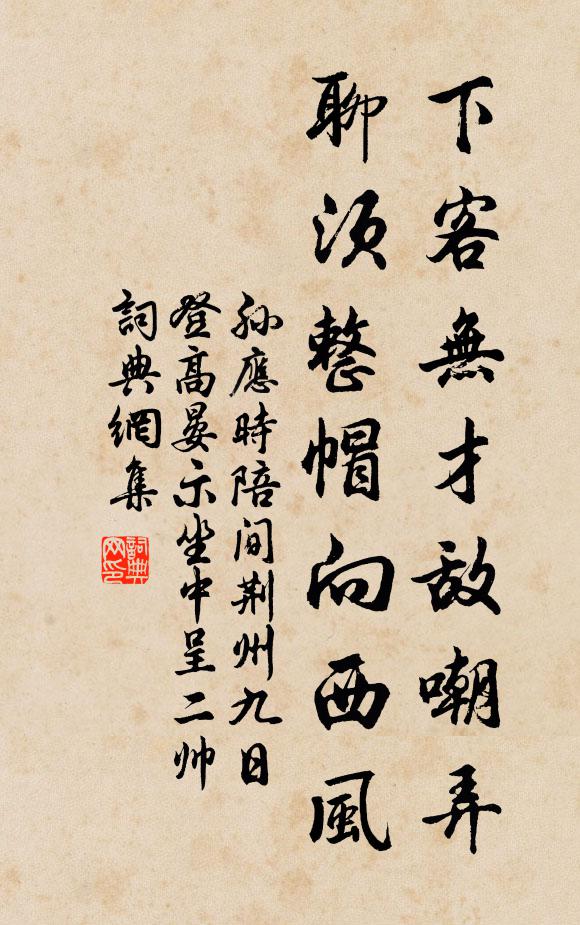 下客無才敌嘲弄
聊須整帽向西風
孙應時陪间荆州九日
登高晏示坐中呈二帅
詞典網集
詞典网印